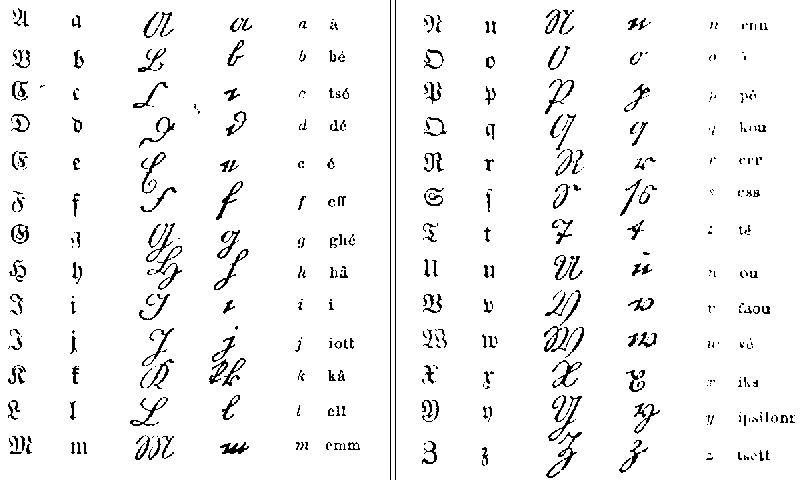 A a A a a à
B b B b b bé
C c C c c tsé
D d D d d dé
E e E e e é
F f F f f eff
G g G g g ghé
H h H h h hâ
I i I i i i
J j J j j iott
K k K k k kâ
L l L l l ell
M m M m m emm
N n N n n enn
O o O o o
P p P p p pé
Q q Q q q kou
R r R r r err
S ſ S ſs s ess
T t T t t té
U u U u u ou
V v V v v faou
W w W w w vé
X x X x x iks
Y y Y y y ipsilonn
Z z Z z z tsett